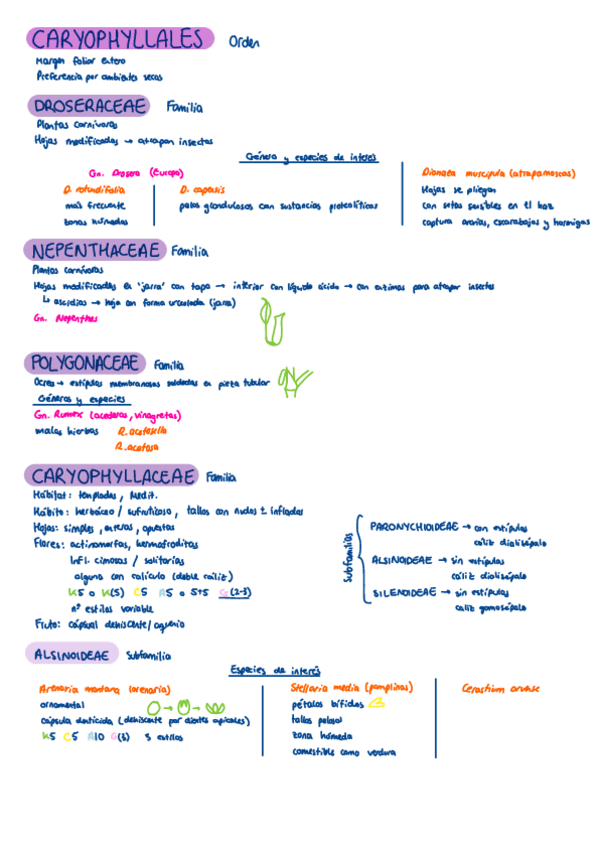 CARYOPHYLLALES Orden
Margen foliar entero
Preferencia por ambientes secos
DROSERACEAE Familia
Plantas carnívoras
Hojas modificadas → atrapan insectos
Género y especies de interés
Gn. Drosera (Europa)
D. rotundifolia
más frecuente
zonas húmedas
D. capensis
pelos glandulosos con sustancias proteolíticas
Dionaea muscipula (atrapamoscas)
Hojas se pliegan
con setas sensibles en el haz
captura arañas, escarabajos y hormigas
NEPENTHACEAE Familia
Plantas carnívoras
Hojas modificadas en 'jarra' con tapa → interior con líquido ácido → con enzimas para atrapar insectos
↳ ascidios → hoja con forma urceolada (jarra)
Gn. Nepenthes
POLYGONACEAE Familia
Ocrea → estípulas membranosas soldadas en pieza tubular
Géneros y especies
Gn. Rumex (acederas, vinagretas)
malas hierbas R. acetosella
R. acetosa
CARYOPHYLLACEAE Familia
Hábitat: templadas, Medit.
Hábito: herbáceo / sufruticoso, tallos con nudos ± inflados
Hojas: simples, enteras, opuestas
Flores: actinomorfas, hermafroditas
Infl. cimosas / solitarias
alguna con calículo (doble cáliz)
K5 o K(5) C5 A5 o 5+5 G(2-3)
nº estilos variable
Fruto: cápsula dehiscente / aquenio
Subfamilias
PARONYCHIOIDEAE → con estípulas
cáliz dialisépalo
ALSINOIDEAE → sin estípulas
cáliz dialisépalo
SILENOIDEAE → sin estípulas
cáliz gamosépalo
ALSINOIDEAE Subfamilia
Especies de interés
Arenaria montana (arenaria)
ornamental
cápsula denticida (dehiscente por dientes apicales)
K5 C5 A10 G(3) 3 estilos
Stellaria media (pamplinas)
pétalos bífidos
tallos pelosos
zona húmeda
comestible como verdura
Cerastium arvense